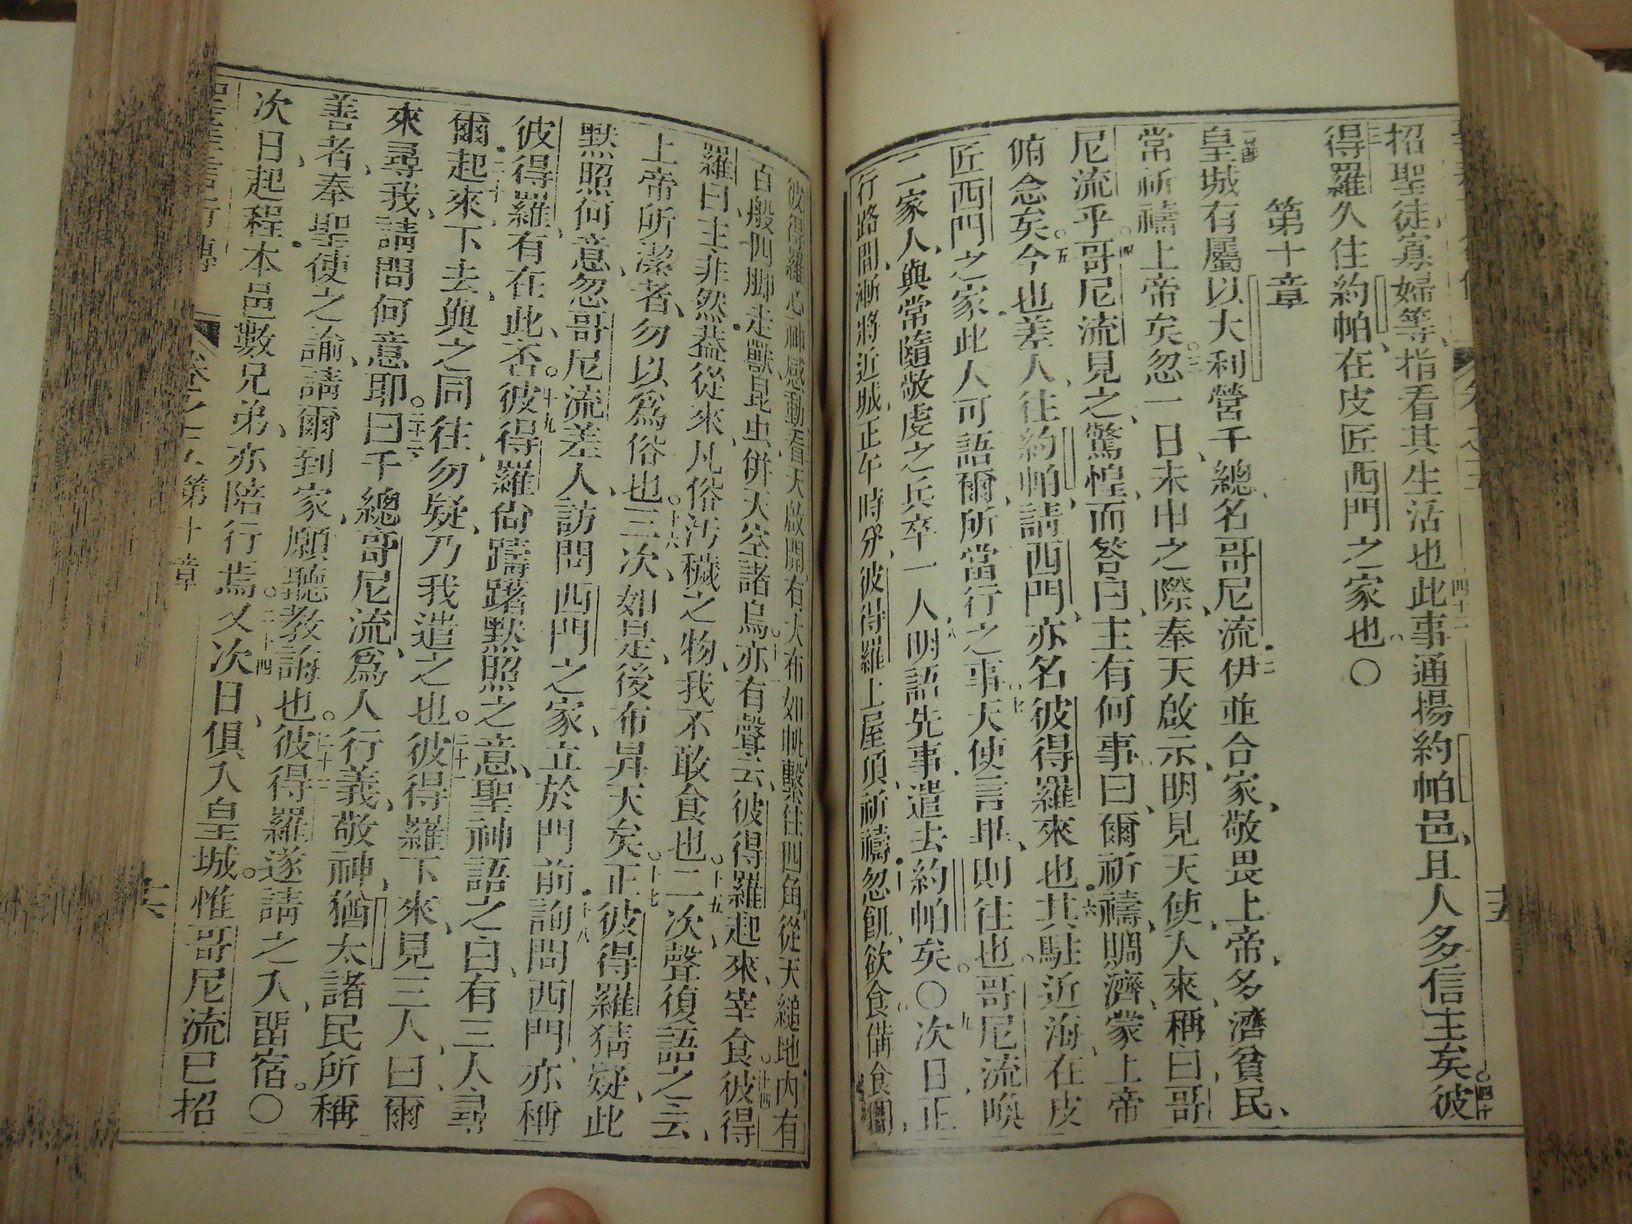 招聖徒寡婦等、指看其生活也此事通揚約帕邑、且人多信主矣彼
得羅久住約帕、在皮匠西門之家也〇
第十章
皇城有屬以大利營千總、名哥尼流伊並合家、敬畏上帝、多濟貧民、
常祈禱上帝矣忽一日未申之際、奉天啟示、明見天使、入來稱曰、哥
尼流乎哥尼流見之驚惶、而答曰、主有何事曰、爾祈禱、賙濟、蒙上帝
俯念矣今也差人、往約帕、請西門、亦名彼得羅來也其駐近海、在皮
匠西門之家此人可語爾、所當行之事天使言畢則往也哥尼流喚
二家人、與常隨敬虔之兵卒一人明語先事、遣去約帕矣。〇次日、正
行路間、漸將近城、正午時分、彼得羅上屋頂、祈禱忽飢欲食備食間、
彼得羅心神感動看天啟開有大布如帆、繫住四角、從天縋地內有
百般四脚走獸昆虫、併天空諸鳥亦有聲云、彼得羅起來、宰食彼得
羅曰、主非然葢從來、凡俗汚穢之物、我不敢食也二次、聲復語之云、
上帝所潔者、勿以為俗也三次、如是、後布昇天矣正彼得羅猜疑、此
默照何意、忽哥尼流差人訪問西門之家、立於門前詢問西門、亦稱
彼得羅、有在此、否。彼得羅尚躊躇默照之意、聖神語之曰、有三人尋
爾起來、下去、與之同往、勿疑、乃我遣之也。彼得羅下來、見三人、曰、爾
來尋我、請問何意耶。曰千總哥尼流、為人行義、敬神、猶太諸民所稱
善者、奉聖使之諭、請爾到家、願聽教誨也。彼得羅遂請之入、畱宿。〇
次日起程本邑數兄弟、亦陪行焉。又次日、俱入皇城。惟哥尼流已招
第十章